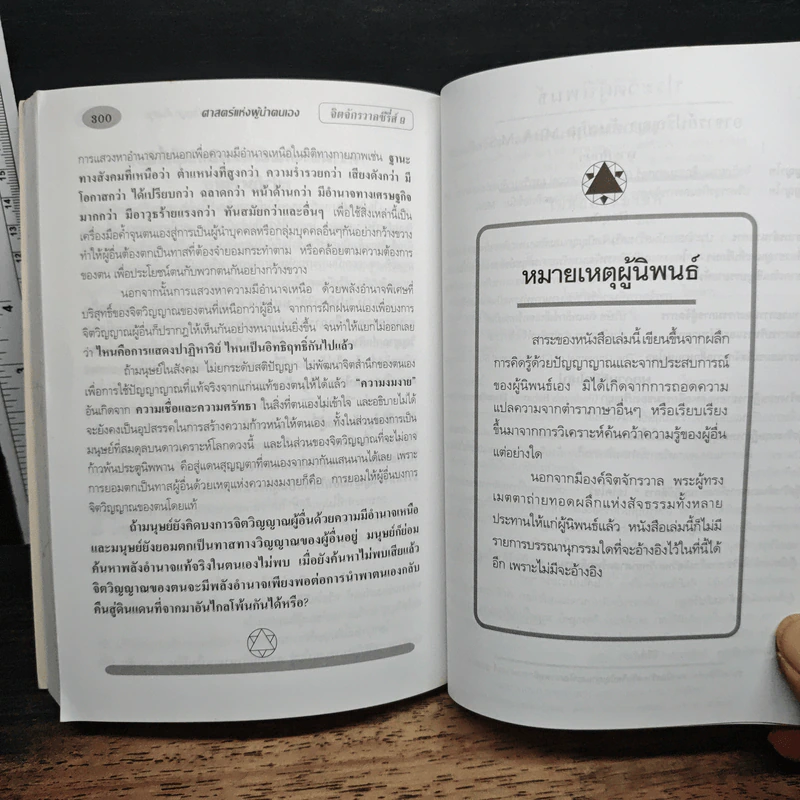 300
ศาสตร์แห่งผู้นำตนเอง
จิตจักรวาลซีรี่ส์ ๓
การแสวงหาอำนาจภายนอกเพื่อความมีอำนาจเหนือในมิติทางกายภาพเช่น ฐานะ
ทางสังคมที่เหนือกว่า ตำแหน่งที่สูงกว่า ความร่ำรวยกว่า เสียงดังกว่า มี
โอกาสกว่า ได้เปรียบกว่า ฉลาดกว่า หน้าด้านกว่า มีอำนาจทางเศรษฐกิจ
มากกว่า มีอาวุธร้ายแรงกว่า ทันสมัยกว่าและอื่นๆ เพื่อใช้สิ่งเหล่านี้เป็น
เครื่องมือค้ำจุนตนเองสู่การเป็นผู้นำบุคคลหรือกลุ่มบุคคลอื่นๆกันอย่างกว้างขวาง
ทำให้ผู้อื่นต้องตกเป็นทาสที่ต้องจำยอมกระทำตาม หรือคล้อยตามความต้องการ
ของตน เพื่อประโยชน์ตนกับพวกตนกันอย่างกว้างขวาง
นอกจากนั้นการแสวงหาความมีอำนาจเหนือ ด้วยพลังอำนาจพิเศษที่
บริสุทธิ์ของจิตวิญญาณของตนที่เหนือกว่าผู้อื่น จากการฝึกฝนตนเองเพื่อบงการ
จิตวิญญาณผู้อื่นก็ปรากฏให้เห็นกันอย่างหนาแน่นยิ่งขึ้น จนทำให้แยกไม่ออกเลย
ว่า ไหนคือการแสดงปาฏิหาริย์ ไหนเป็นอิทธิฤทธิ์กันไปแล้ว
ถ้ามนุษย์ในสังคม ไม่ยกระดับสติปัญญา ไม่พัฒนาจิตสำนึกของตนเอง
เพื่อการใช้ปัญญาญาณที่แท้จริงจากแก่นแท้ของตนให้ได้แล้ว "ความงมงาย"
อันเกิดจาก ความเชื่อและความศรัทธา ในสิ่งที่ตนเองไม่เข้าใจ และอธิบายไม่ได้
จะยังคงเป็นอุปสรรคในการสร้างความก้าวหน้าให้ตนเอง ทั้งในส่วนของการเป็น
มนุษย์ที่สมดุลบนดาวเคราะห์โลกดวงนี้ และในส่วนของจิตวิญญาณที่จะไม่อาจ
ก้าวพ้นประตูนิพพาน คือสู่แดนสุญญตาที่ตนเองจากมากันแสนนานได้เลย เพราะ
การยอมตกเป็นทาสผู้อื่นด้วยเหตุแห่งความงมงายก็คือ การยอมให้ผู้อื่นบงการ
จิตวิญญาณของตนโดยแท้
ถ้ามนุษย์ยังคิดบงการจิตวิญญาณผู้อื่นด้วยความมีอำนาจเหนือ
และมนุษย์ยังยอมตกเป็นทาสทางวิญญาณของผู้อื่นอยู่ มนุษย์ก็ย่อม
ค้นหาพลังอำนาจแท้จริงในตนเองไม่พบ เมื่อยังค้นหาไม่พบเสียแล้ว
จิตวิญญาณของตนจะมีพลังอำนาจเพียงพอต่อการนำพาตนเองกลับ
คืนสู่ดินแดนที่จากมาอันไกลโพ้นกันได้หรือ?
หมายเหตุผู้นิพนธ์
สาระของหนังสือเล่มนี้ เขียนขึ้นจากผลึก
การคิดรู้ด้วยปัญญาญาณและจากประสบการณ์
ของผู้นิพนธ์เอง มิได้เกิดจากการถอดความ
แปลความจากตำราภาษาอื่นๆ หรือเรียบเรียง
ขึ้นมาจากการวิเคราะห์ค้นคว้าความรู้ของผู้อื่น
แต่อย่างใด
นอกจากมีองค์จิตจักรวาล พระผู้ทรง
เมตตาถ่ายทอดผลึกแห่งสัจธรรมทั้งหลาย
ประทานให้แก่ผู้นิพนธ์แล้ว หนังสือเล่มนี้ก็ไม่มี
รายการบรรณานุกรมใดที่จะอ้างอิงไว้ในที่นี้ได้
อีก เพราะไม่มีจะอ้างอิง